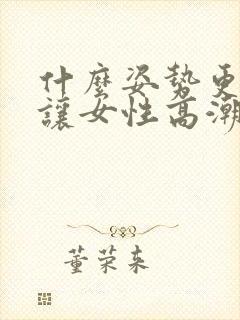 什麼姿勢更
讓女性高潮
董荣来